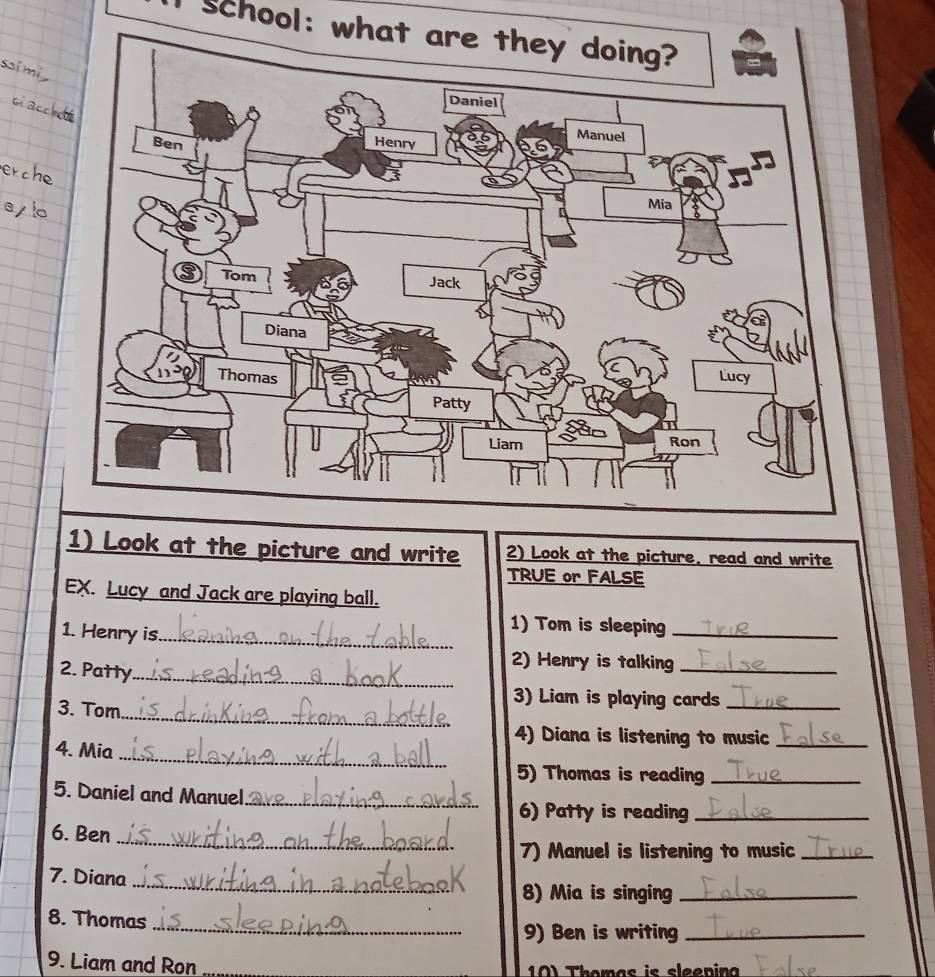 school: what are they doing?
Daniel
Ben
Henry
Manuel
Mia
S
Tom
Jack
Diana
Thomas
Lucy
Patty
Liam
Ron
1) Look at the picture and write
EX. Lucy and Jack are playing ball.
1. Henry is leaning on the table.
2. Patty is reading a book
3. Tom is drinking from a bottle.
4. Mia is playing with a ball
5. Daniel and Manuel are playing cards
6. Ben is writing on the board.
7. Diana is writing in a notebook
8. Thomas is sleeping
9. Liam and Ron
2) Look at the picture, read and write
TRUE or FALSE
1) Tom is sleeping True
2) Henry is talking False
3) Liam is playing cards True
4) Diana is listening to music False
5) Thomas is reading True
6) Patty is reading False
7) Manuel is listening to music True
8) Mia is singing False
9) Ben is writing True
10) Thomas is sleeping False